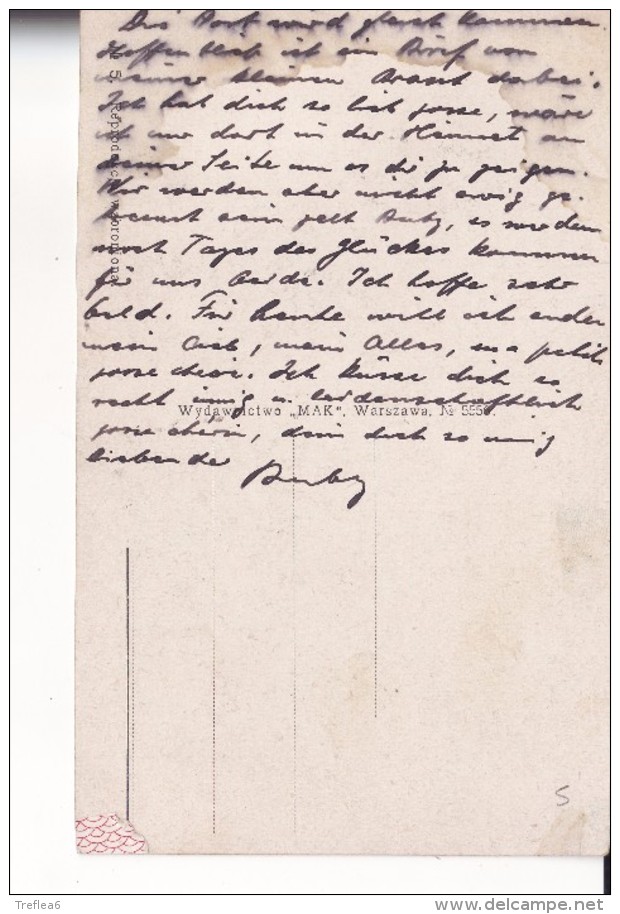 Die Post wird gleich kommen.
Hoffentlich ist ein Brief von
meiner kleinen Braut dabei.
Ich hab dich so lieb gosse, wäre
ich nur dort in der Heimat an
deiner Seite um es dir zu zeigen.
Wir werden aber nicht ewig ge-
trennt sein gelt, es werden
noch Tage des Glückes kommen
für uns beide. Ich hoffe sehr
bald. Für heute will ich enden
mein Lieb, mein Alles, ma petite
gosse cherie. Ich küsse dich so
recht innig u. leidenschaftlich
gosse cherie, dein dich so innig
liebender
Wydawnictwo „MAK", Warszawa, №
5
Treflea6
www.delcampe.net